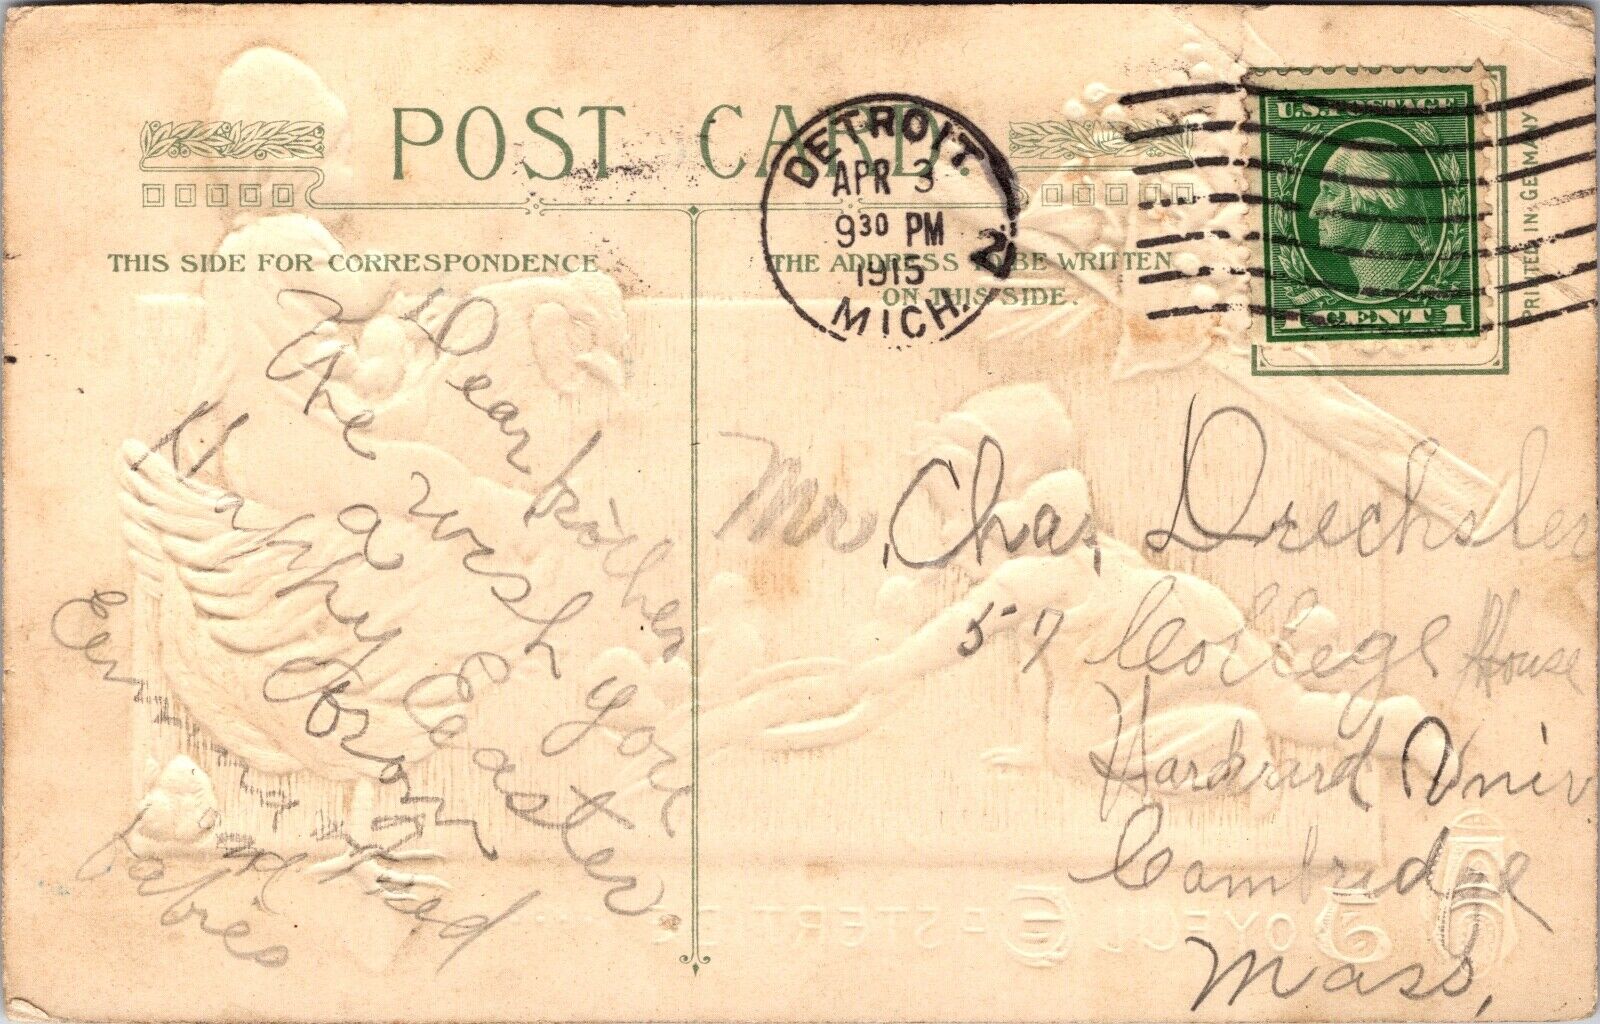 POST CARD.
THIS SIDE FOR CORRESPONDENCE
THE ADDRESS TO BE WRITTEN
ON THIS SIDE.
DETROIT,
APR 3
9 30 PM
1915
MICH.
2
U.S. POSTAGE
1 CENT 1
PRINTED IN GERMANY
Dear brother
We wish you
a
Happy Easter.
from
Em
and Fred
and
babies
Mr. Chas. Drechsler
57 College House
Harvard Univ
Cambridge
Mass.
JOYFUL EASTERTIDE